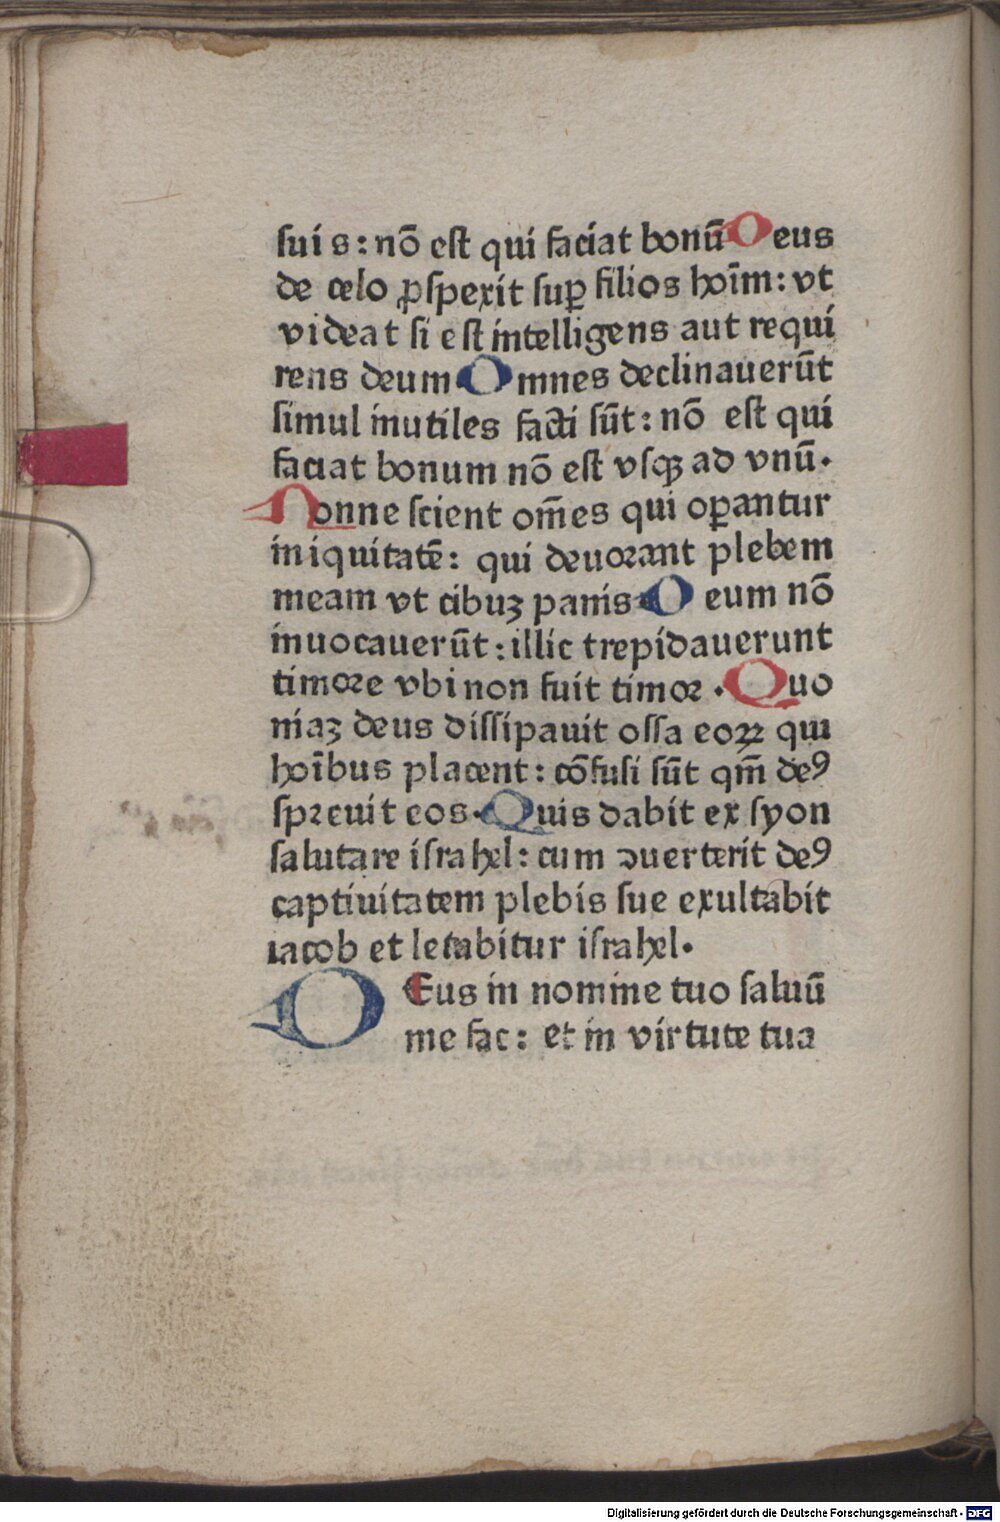 suis: nō est qui faciat bonū Deus
de celo ꝓspexit suꝑ filios hoīm: vt
videat si est intelligens aut requi
rens deum Omnes declinauerūt
simul inutiles facti sūt: nō est qui
faciat bonum nō est vsqꝫ ad vnū.
Nonne scient om̄es qui oꝑantur
iniquitatē: qui deuorant plebem
meam vt cibuꝫ panis Deum nō
inuocauerūt: illic trepidauerunt
timore vbi non fuit timor. Quo
niaꝫ deus dissipauit ossa eoꝝ qui
hoībus placent: cōfusi sūt qm̄ deꝰ
spreuit eos. Quis dabit ex syon
salutare israhel: cum ↄuerterit deꝰ
captiuitatem plebis sue exultabit
iacob et letabitur israhel.
DEus in nomine tuo saluū
me fac: et in virtute tua
Digitalisierung gefördert durch die Deutsche Forschungsgemeinschaft - DFG